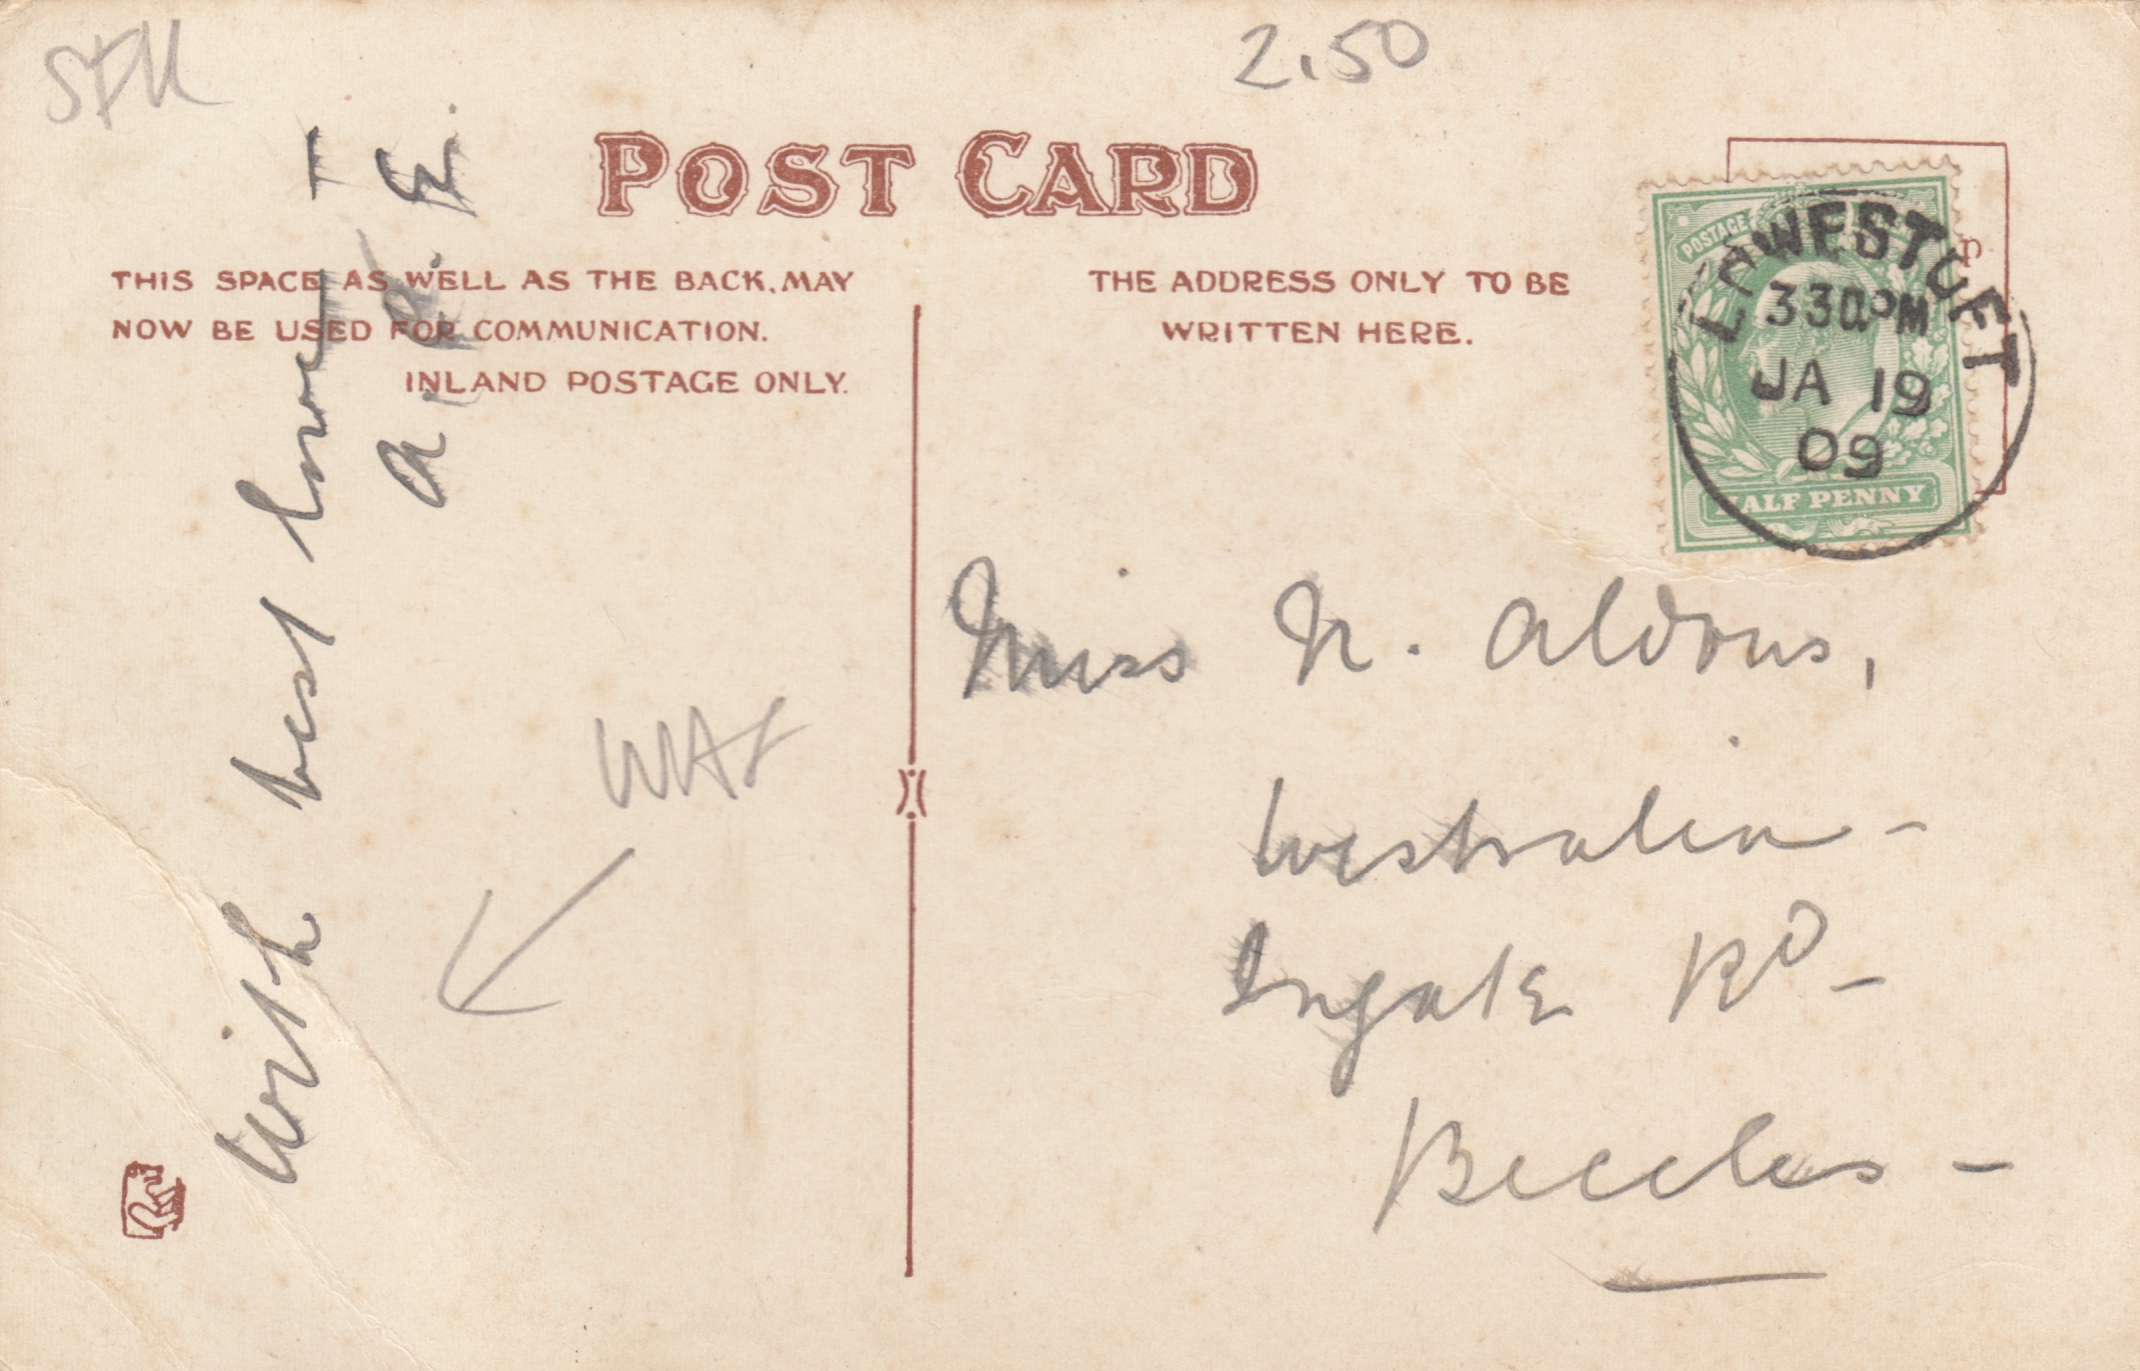 SFK
2.50
POST CARD
THIS SPACE AS WELL AS THE BACK, MAY
NOW BE USED FOR COMMUNICATION.
INLAND POSTAGE ONLY.
THE ADDRESS ONLY TO BE
WRITTEN HERE.
POSTAGE
HALF PENNY
LOWESTOFT
330PM
JA 19
09
With best love
WAF
Miss N. Aldous,
Westralia -
Ingate Rd -
Beccles -